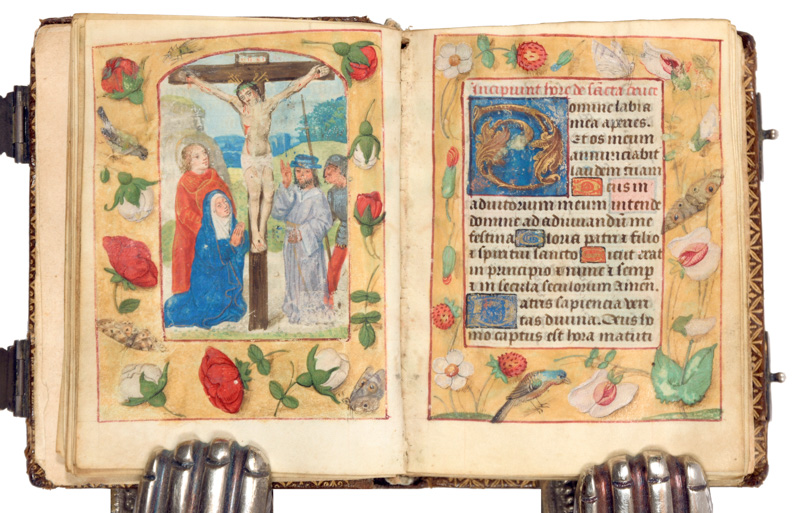 Incipiunt hore de sancta cruce
Domine labia
mea aperies.
Et os meum
annunciabit
laudem tuam
Deus in
adiutorium meum intende
domine ad adiuvandū me
festina Gloria patri ⁊ filio
⁊ spiritui sancto Sicut erat
in principio ⁊ nunc ⁊ semp
⁊ in secula seculorum amen.
Patris sapiencia veri
tas divina. Deus ho
mo captus est hora matuti